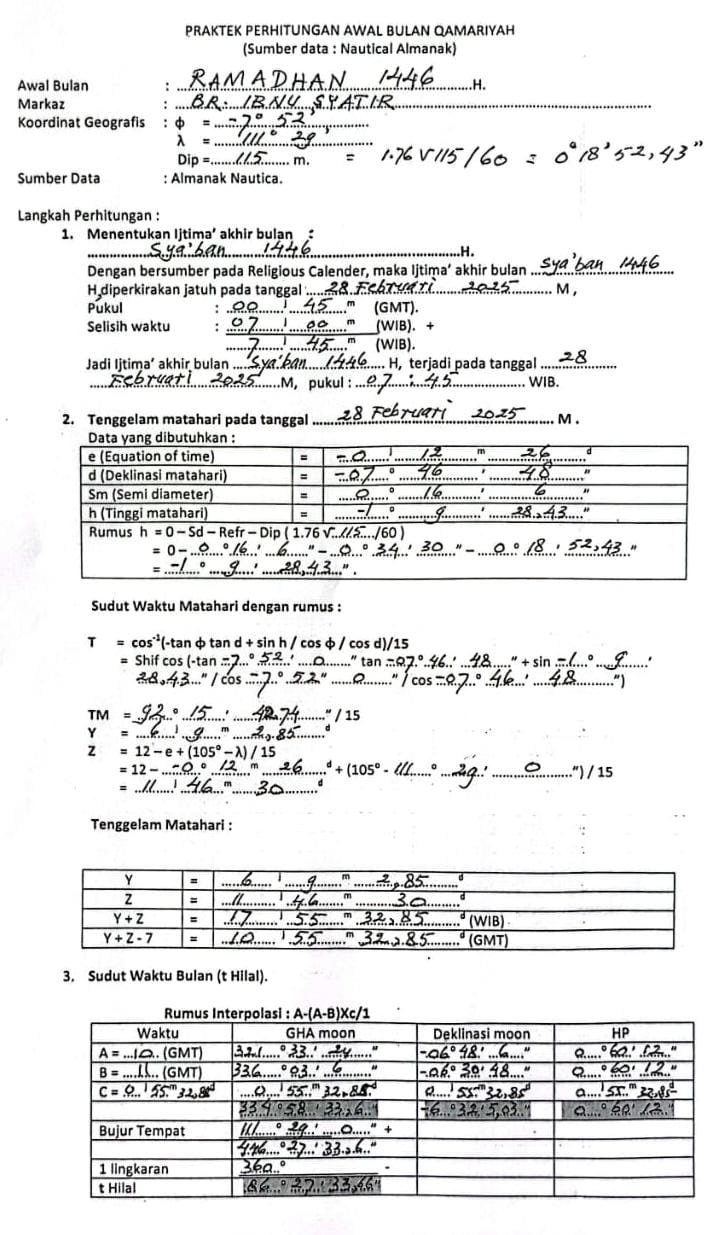 PRAKTEK PERHITUNGAN AWAL BULAN QAMARIYAH
(Sumber data : Nautical Almanak)
Awal Bulan : RAMADHAN 1446 H.
Markaz : BR. IBNU SYATIR
Koordinat Geografis : ϕ = -7° 52'
λ = 111° 29'
Dip = 115 m. = 1.76 √115/60 = 0°18'52,43"
Sumber Data : Almanak Nautica.
Langkah Perhitungan :
1. Menentukan Ijtima' akhir bulan :
Sya'ban 1446 H.
Dengan bersumber pada Religious Calender, maka Ijtima' akhir bulan Sya'ban 1446
H, diperkirakan jatuh pada tanggal 28 Februari 2025 M,
Pukul : 00 j 45 m (GMT).
Selisih waktu : 07 j 00 m (WIB). +
7 j 45 m (WIB).
Jadi Ijtima' akhir bulan Sya'ban 1446 H, terjadi pada tanggal 28
Februari 2025 M, pukul : 07 : 45 WIB.
2. Tenggelam matahari pada tanggal 28 Februari 2025 M.
Data yang dibutuhkan :
e (Equation of time) = -0 j 12 m 26 d
d (Deklinasi matahari) = -07 ° 46 ' 48 "
Sm (Semi diameter) = 0 ° 16 ' 6 "
h (Tinggi matahari) = -1 ° 9 ' 28,43 "
Rumus h = 0 – Sd – Refr – Dip ( 1.76 √115/60 )
= 0 – 0 ° 16 ' 6 " – 0 ° 34 ' 30 " – 0 ° 18 ' 52,43 "
= -1 ° 9 ' 28,43 " .
Sudut Waktu Matahari dengan rumus :
T = cos⁻¹(-tan ϕ tan d + sin h / cos ϕ / cos d)/15
= Shif cos (-tan -7 ° 52 ' 0 " tan -07 ° 46 ' 48 " + sin -1 ° 9 '
28,43 " / cos -7 ° 52 " 0 " / cos -07 ° 46 ' 48 ")
TM = 92 ° 15 ' 42,74 " / 15
Y = 6 j 9 m 2,85 d
Z = 12 – e + (105° – λ) / 15
= 12 – -0 ° 12 m 26 d + (105° - 111 ° 29 ' 0 ") / 15
= 11 j 46 m 30 d
Tenggelam Matahari :
Y = 6 j 9 m 2,85 d
Z = 11 j 46 m 30 d
Y + Z = 17 j 55 m 32,85 d (WIB)
Y + Z - 7 = 10 j 55 m 32,85 d (GMT)
3. Sudut Waktu Bulan (t Hilal).
Rumus Interpolasi : A-(A-B)Xc/1
Waktu GHA moon Deklinasi moon HP
A = 10 (GMT) 321 ° 33 ' 24 " -06° 48 ' 6 " 0 ° 60 ' 12 "
B = 11 (GMT) 336 ° 03 ' 6 " -06° 30 ' 48 " 0 ° 60 ' 12 "
C = 0 j 55 m 32,85 d 0 j 55 m 32,85 d 0 j 55 m 32,85 d 0 j 55 m 32,85 d
334 ° 58 ' 33,26 " -6 ° 32 ' 5,03 " 0 ° 60 ' 12 "
Bujur Tempat 111 ° 29 ' 0 " +
446 ° 27 ' 33,26 "
1 lingkaran 360 ° -
t Hilal 86 ° 27 ' 33,66 "